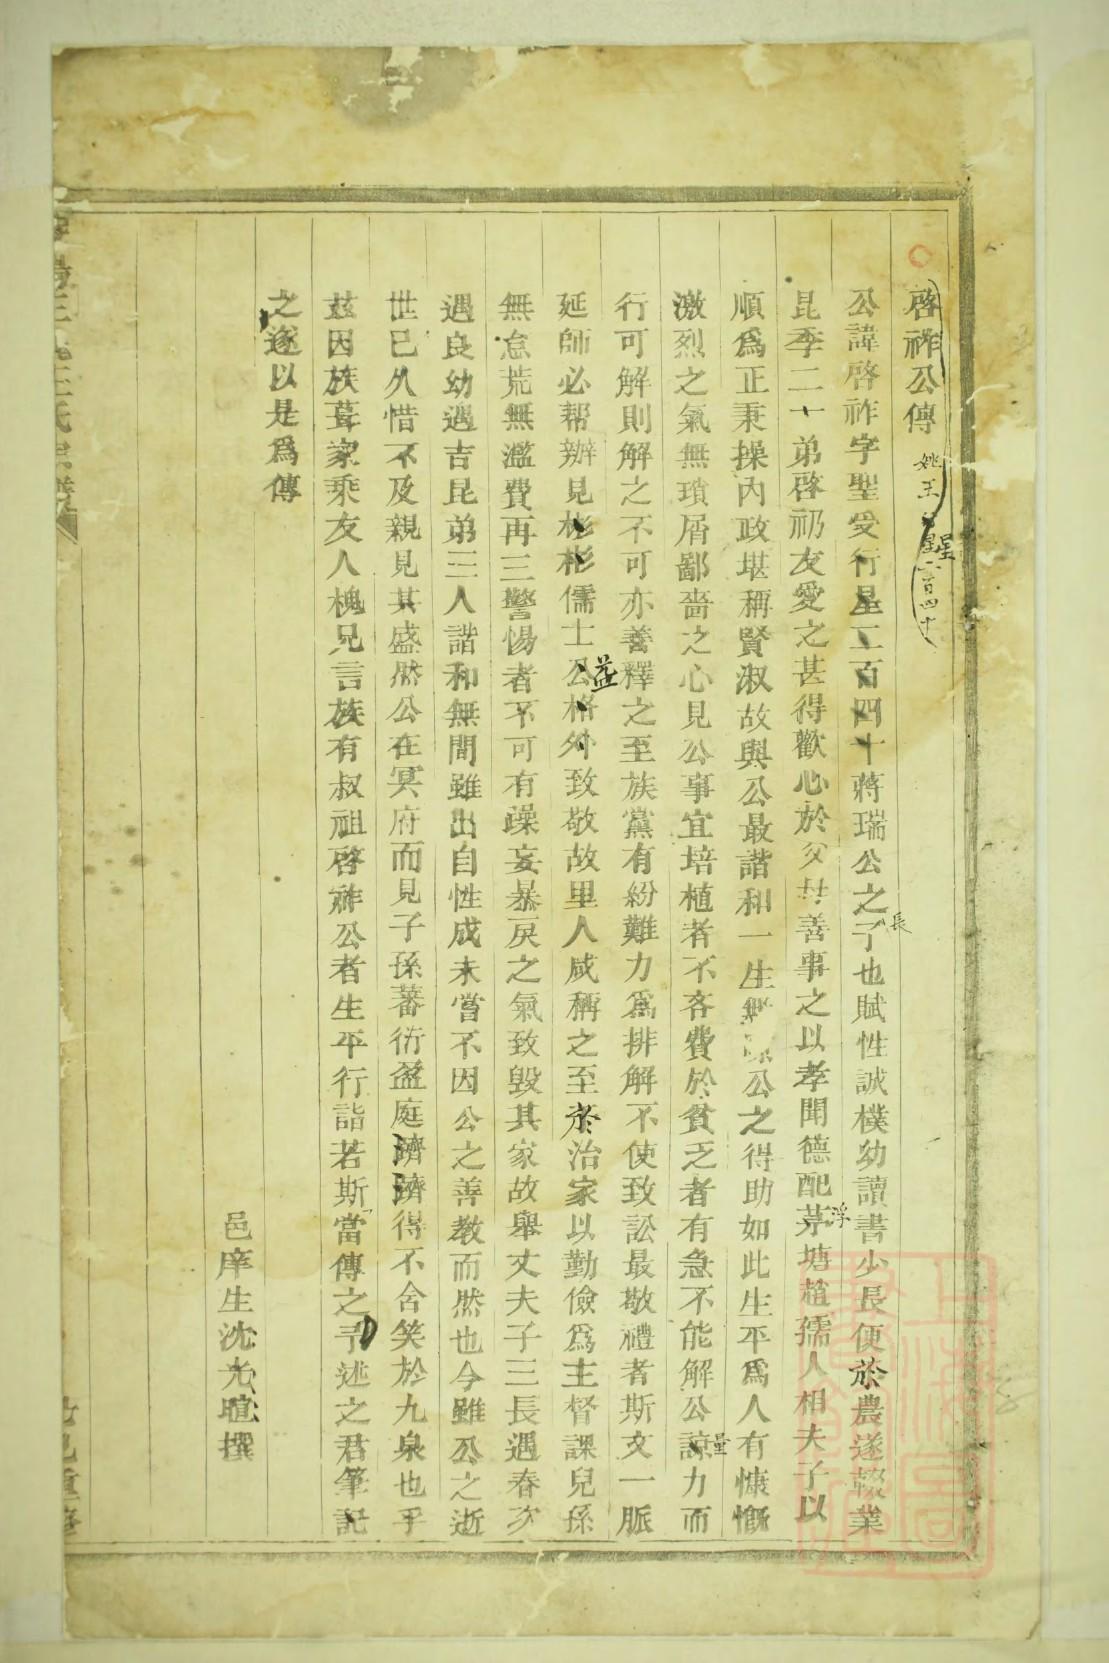 啓祚公傳 姚王 星 二百四十
公諱啓祚字聖受行星二百四十蔣瑞公之子也賦性誠樸幼讀書少長便於農遂輟業
長
昆季二十弟啓礽友愛之甚得歡心於父母善事之以孝聞德配茅塘趙孺人相夫子以
浮
順爲正秉操內政堪稱賢淑故與公最諧和一生無 公之得助如此生平爲人有慷慨
激烈之氣無瑣屑鄙嗇之心見公事宜培植者不吝費於貧乏者有急不能解公諒力而
量
行可解則解之不可亦善釋之至族黨有紛難力爲排解不使致訟最敬禮者斯文一脈
延師必帮辦見彬彬儒士公格外致敬故里人咸稱之至於治家以勤儉爲主督課兒孫
益
無怠荒無濫費再三警惕者不可有躁妄暴戾之氣致毀其家故舉丈夫子三長遇春次
遇良幼遇吉昆弟三人諧和無間雖出自性成未嘗不因公之善教而然也今雖公之逝
世已久惜不及親見其盛然公在冥府而見子孫蕃衍盈庭躋躋得不含笑於九泉也乎
茲因族葺家乘友人槐兄言族有叔祖啓祚公者生平行詣若斯當傳之予述之君筆記
之遂以是爲傳
邑庠生沈光暄撰